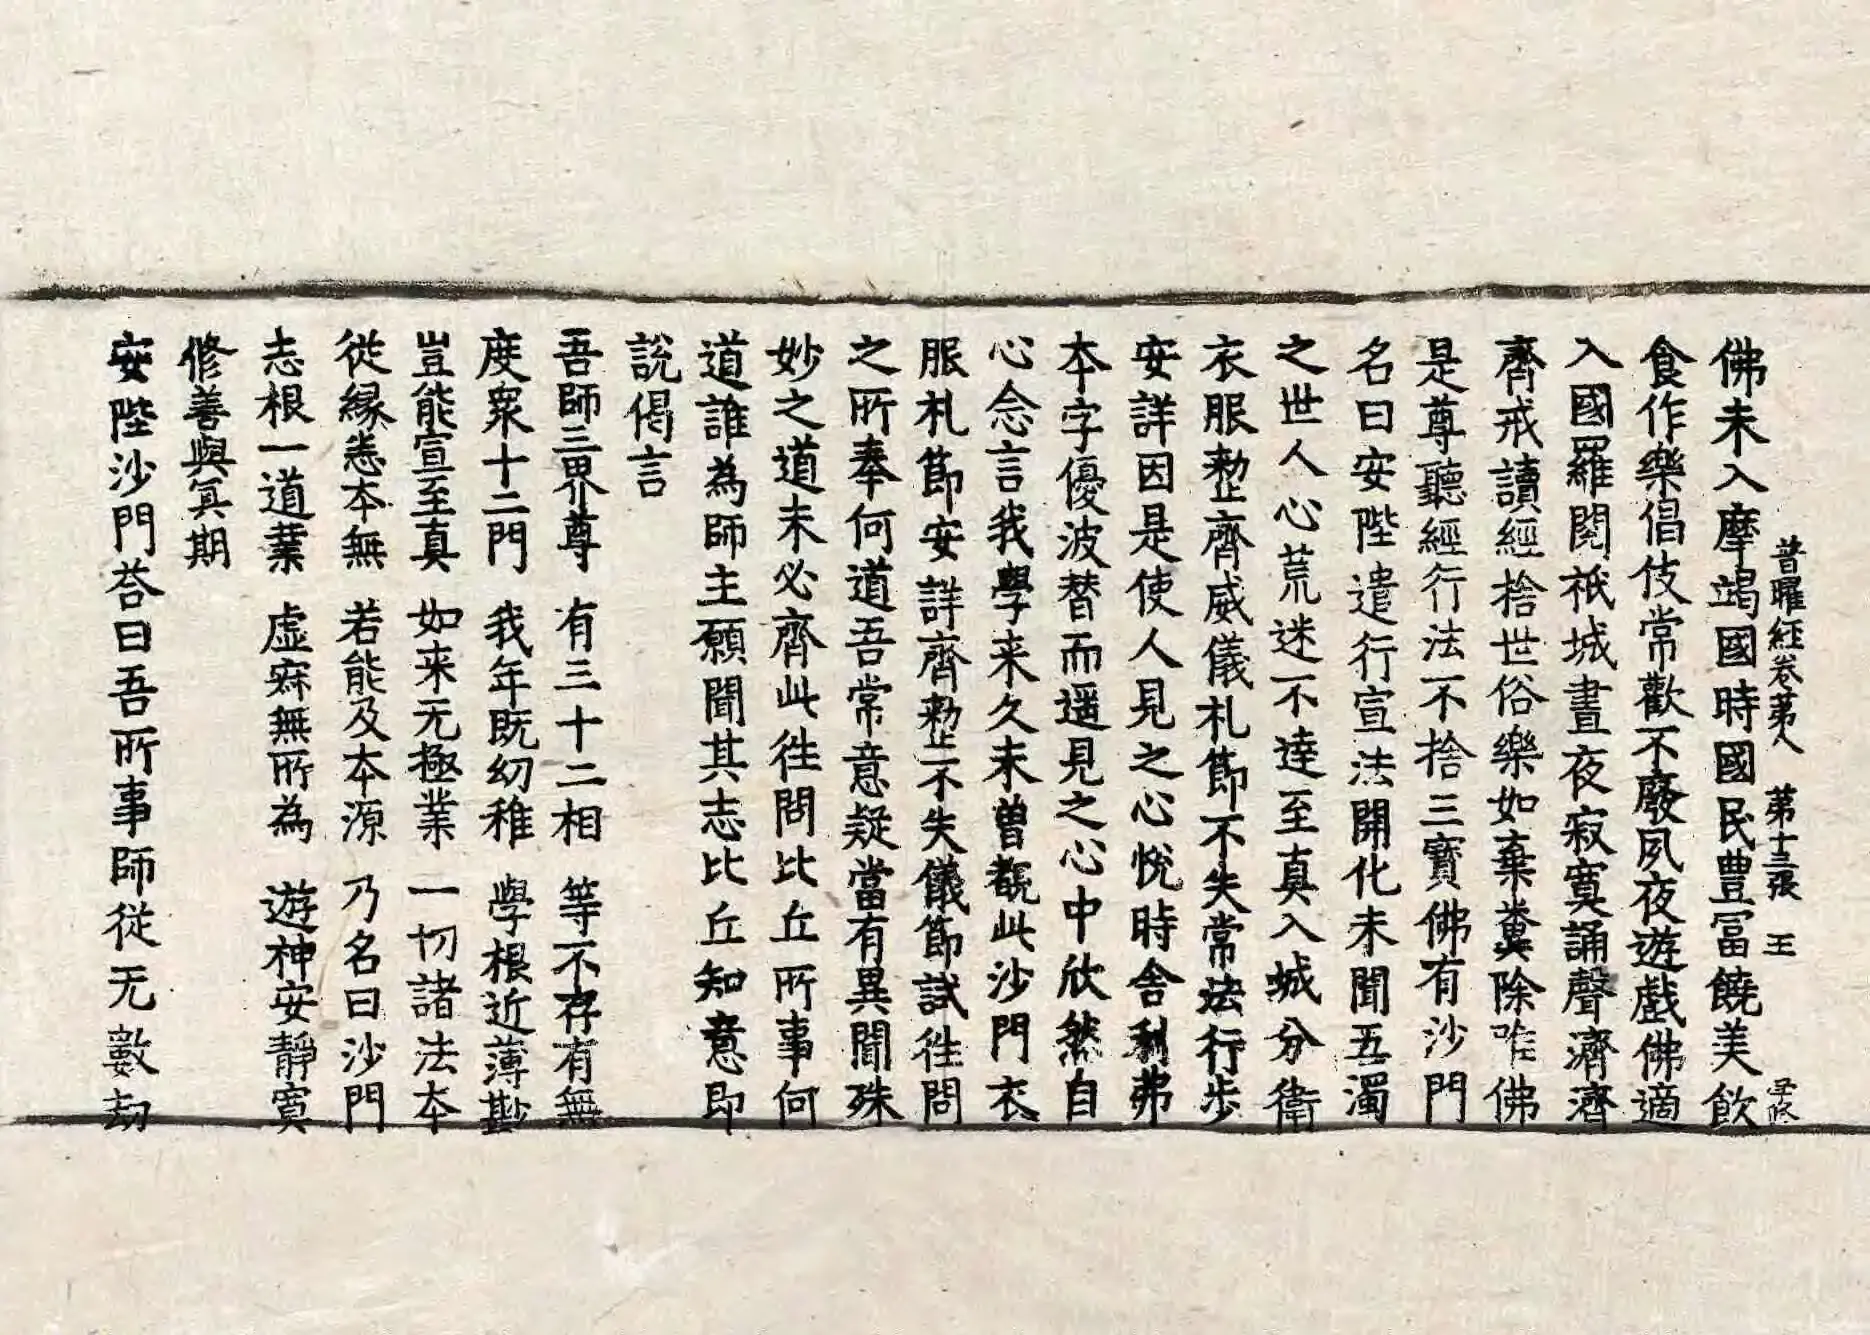 佛未入摩竭國時國民豊冨饒美飲
普曜経卷苐八　苐十三張　王
食作樂倡伎常歡不廢夙夜遊戲佛適
入國羅閱祇城晝夜寂寞誦聲濟濟
齊戒讀經捨世俗樂如棄糞除唯佛
是尊聽經行法不捨三寶佛有沙門
名曰安陛遣行宣法開化未聞五濁
之世人心荒迷不達至真入城分衛
衣服整齊威儀礼節不失常法行步
安詳因是使人見之心悅時舍利弗
本字優波替而遥見之心中欣然自
心念言我學来久未曽覩此沙門衣
服礼節安詳齊整不失儀節試徃問
之所奉何道吾常意疑當有異聞殊
妙之道未必齊此徃問比丘所事何
道誰為師主願聞其志比丘知意即
說偈言
吾師三界尊　有三十二相　等不存有無
度衆十二門　我年既幼稚　學根近薄尠
豈能宣至真　如来无極業　一切諸法本
従縁悉本無　若能及本源　乃名曰沙門
志根一道業　虚寂無所為　遊神安靜寞
修善與冥期
安陛沙門荅曰吾所事師従无數劫